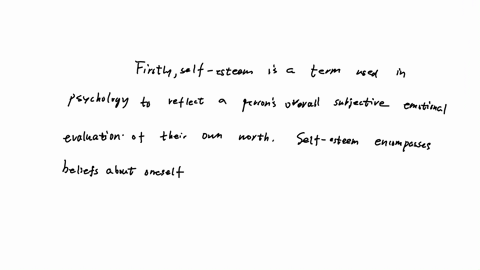 Firstly, self-esteem is a term used in
psychology to reflect a person's overall subjective emotional
evaluation of their own worth. Self-esteem encompasses
beliefs about oneself